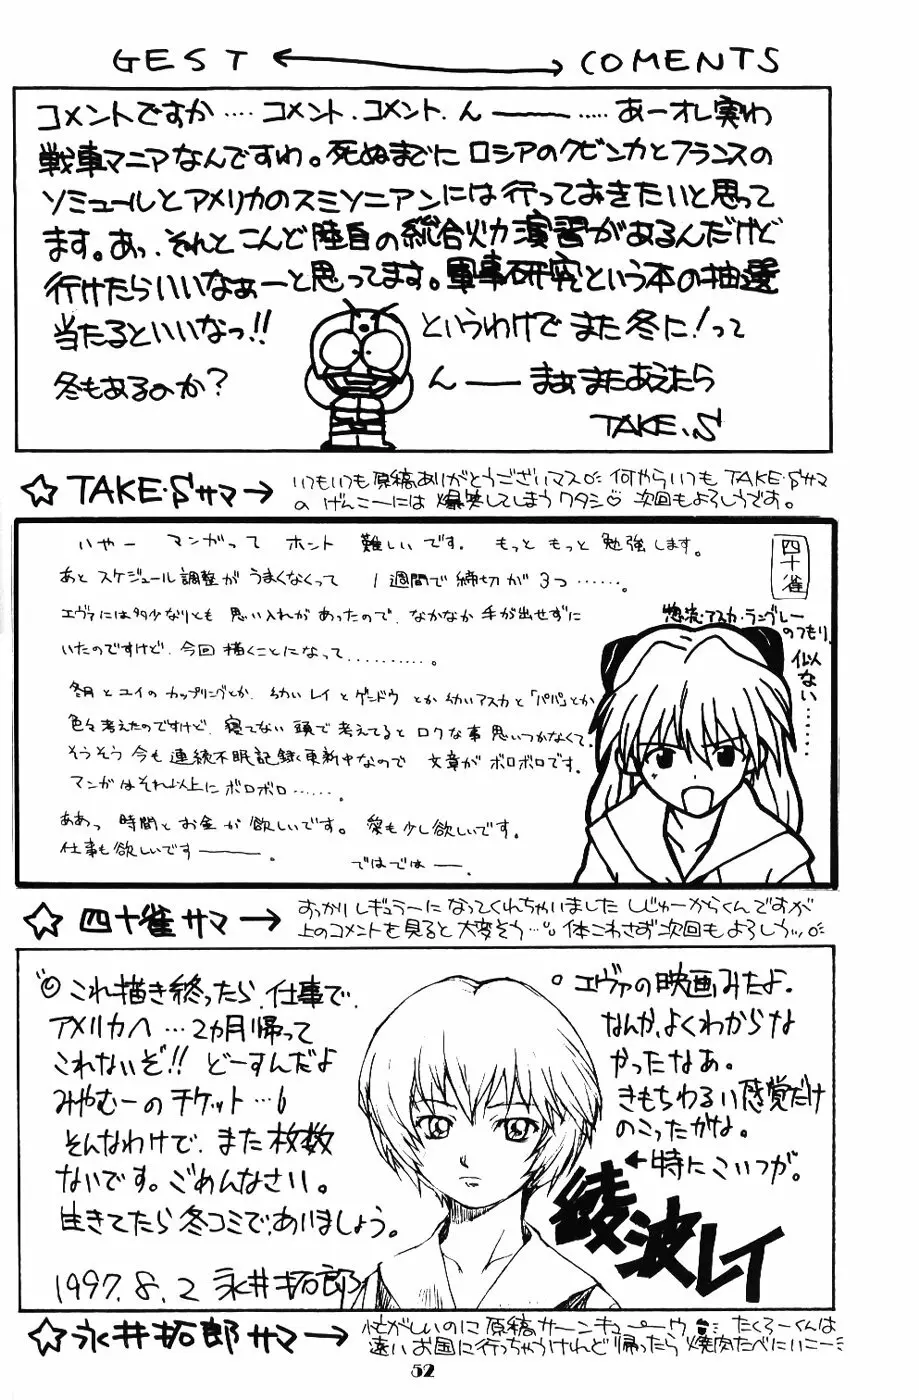 GEST ←→ COMENTS
コメントですか‥‥コメント.コメント.んーーー‥‥あーオレ実わ
戦車マニアなんですわ。死ぬまでにロシアのクビンカとフランスの
ソミュールとアメリカのスミソニアンには行っておきたいと思って
ます。あっ.それとこんど陸自の総合火力演習があるんだけど
行けたらいいなぁーと思ってます。軍事研究という本の抽選
当たるといいなっ!!
冬もあるのか?
というわけでまた冬に!って
んーーーまぁまたあえたら
TAKE.S
☆TAKE・Sサマ→
いつもいつも原稿ありがとうございマス 何やらいつもTAKE・Sサマ
のげんこーには爆笑してしまうワタシ♡ 次回もよろしうです。
いやー マンガって ホント 難しいです. もっともっと勉強します。
四十雀
あと スケジュール調整が うまくなくって 1週間で締切が3つ‥‥‥。
エヴァには多少なりとも 思い入れがあったので、なかなか手が出せずに
いたのですけど、今回描くことになって‥‥‥‥‥。
冬月とユイのカップリングとか、幼いレイとゲンドウとか幼いアスカと「パパ」とか
色々考えたのですけど、寝てない頭で考えてるとロクな事思いつかなくて。
そうそう今も連続不眠記録更新中なので 文章がボロボロです。
マンガはそれ以上にボロボロ‥‥‥。
ああっ 時間とお金が欲しいです。愛も少し欲しいです。
仕事も欲しいですーーー。
ではではー.
惣流・アスカ・ラングレー
のつもり.
似ない‥‥‥
☆四十雀サマ→
すっかりレギュラーになってくれちゃいましたしじゅーからくんですが
上のコメントを見ると大変そう‥。体こわさず次回もよろしうっ
◎これ描き終ったら.仕事で.
アメリカへ…2カ月帰って
これないぞ!! どーすんだよ
みやむーのチケット…
そんなわけで、また枚数
ないです。ごめんなさい。
生きてたら冬コミであいましょう。
1997.8.2 永井拓郎
○エヴァの映画みたよ。
なんか、よくわからな
かったなあ。
きもちわるい感覚だけ
のこったかな。
←特にこいつが。
綾波レイ
☆永井拓郎サマ→
忙がしいのに原稿サーンキューウ たくろーくんは
遠いお国に行っちゃうけれど帰ったら焼肉たべにいこー
52